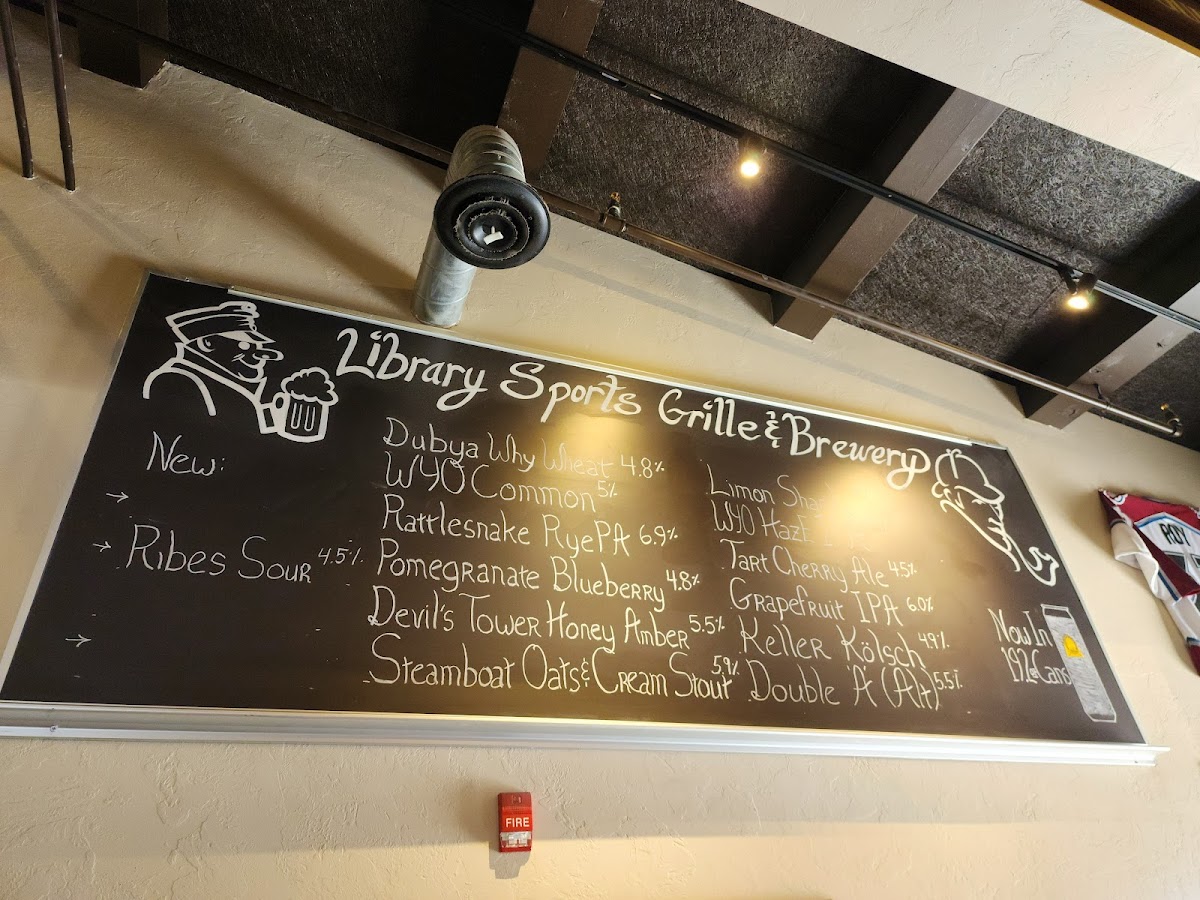 Library Sports Grille & Brewery
New:
→
→ Ribes Sour 4.5%
→
Dubya Why Wheat 4.8%
WYO Common 5%
Rattlesnake RyePA 6.9%
Pomegranate Blueberry 4.8%
Devil's Tower Honey Amber 5.5%
Steamboat Oats & Cream Stout 5.9%
Limon
WYO Haze
Tart Cherry Ale 4.5%
Grapefruit IPA 6.0%
Keller Kölsch 4.9%
Double 'A' (Alt) 5.5%
Now In
19.2oz Cans
FIRE
ROY